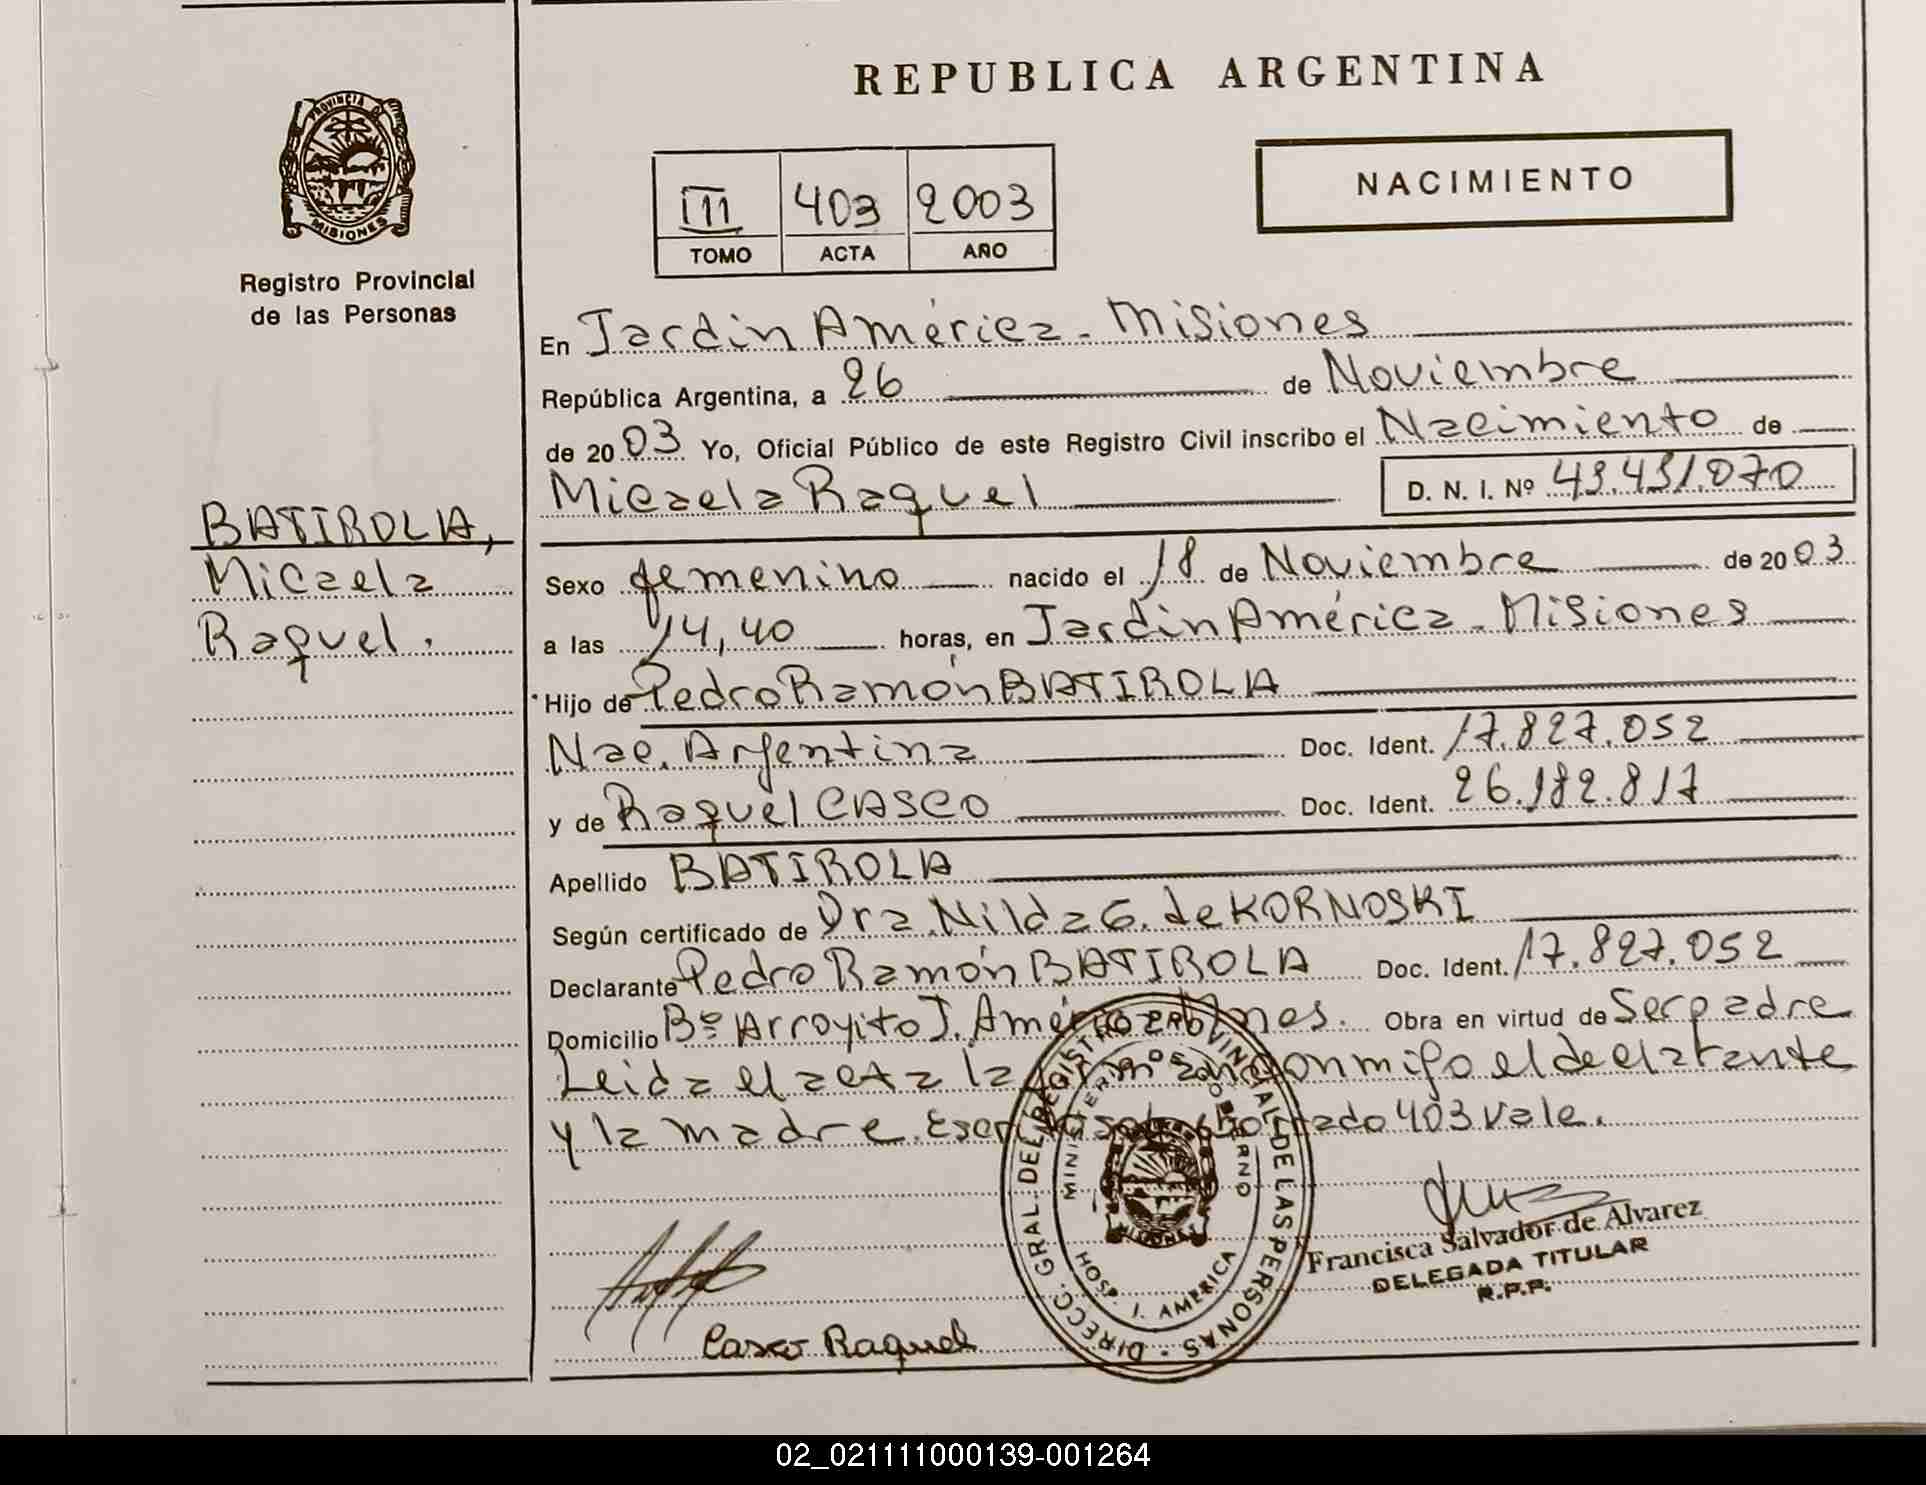 REPUBLICA ARGENTINA
PROVINCIA DE
MISIONES
Registro Provincial
de las Personas
III 403 2003
TOMO ACTA AÑO
NACIMIENTO
En Jardin América - Misiones
República Argentina, a 26 de Noviembre
de 2003 Yo, Oficial Público de este Registro Civil inscribo el Nacimiento de
Micaela Raquel D. N. I. Nº 43.431.070
BATIROLA,
Micaela
Raquel.
Sexo femenino nacido el 18 de Noviembre de 2003
a las 14,40 horas, en Jardin América - Misiones
Hijo de Pedro Ramón BATIROLA
Nac. Argentina Doc. Ident. 17.827.052
y de Raquel CASCO Doc. Ident. 26.182.817
Apellido BATIROLA
Según certificado de Dra. Nilda G. de KORNOSKI
Declarante Pedro Ramón BATIROLA Doc. Ident. 17.827.052
Domicilio Bº Arroyito J. América Mnes. Obra en virtud de Ser padre
Leida el acta la conmigo el declarante
y la madre. borrado 403 vale.
DIRECC. GRAL. DEL REGISTRO PROVINCIAL DE LAS PERSONAS
MINISTERIO DE GOBIERNO
HOSP. J. AMERICA
MISIONES
Francisca Salvador de Alvarez
DELEGADA TITULAR
R.P.P.
Casco Raquel
02_021111000139-001264